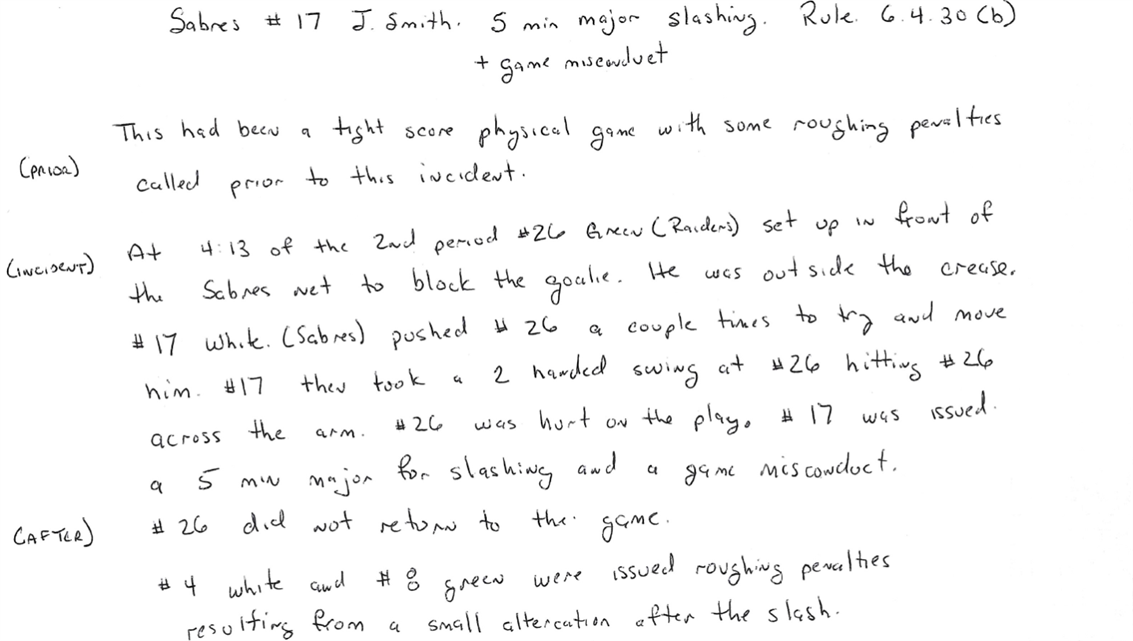 Sabres # 17 J. Smith. 5 min major slashing. Rule. 6.4.30 (b)
+ game misconduct
This had been a tight score physical game with some roughing penalties
(PRIOR)
called prior to this incident.
At 4:13 of the 2nd period #26 Green (Raiders) set up in front of
(INCIDENT)
the Sabres net to block the goalie. He was outside the crease.
#17 White. (Sabres) pushed # 26 a couple times to try and move
him. #17 then took a 2 handed swing at #26 hitting #26
across the arm. #26 was hurt on the play. # 17 was issued.
a 5 min major for slashing and a game misconduct.
(AFTER) # 26 did not return to the game.
# 4 white and # 8 green were issued roughing penalties
resulting from a small altercation after the slash.